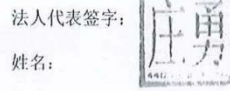 法人代表签字：庄勇
姓名：